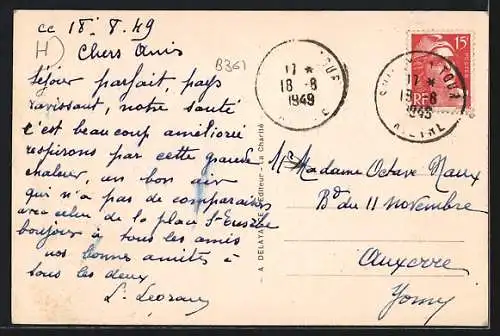 ce 18.8.49
H)
Chers Amis
B361
Séjour parfait, pays
ravissant, notre santé
c'est beaucoup améliorée
respirons par cette grande
chaleur un bon air
qui n'a pas de comparaison
avec celui de la place St Eusèbe
bonjour à tous les amis
nos bonnes amités à
tous les deux
17 *
18-8
1949
17 *
18-8
1949
NIEVRE
15
RF
A DELAYANCE Editeur - La Charité
Madame Octave Naux
Bd du 11 novembre
Auxerre
Yonne